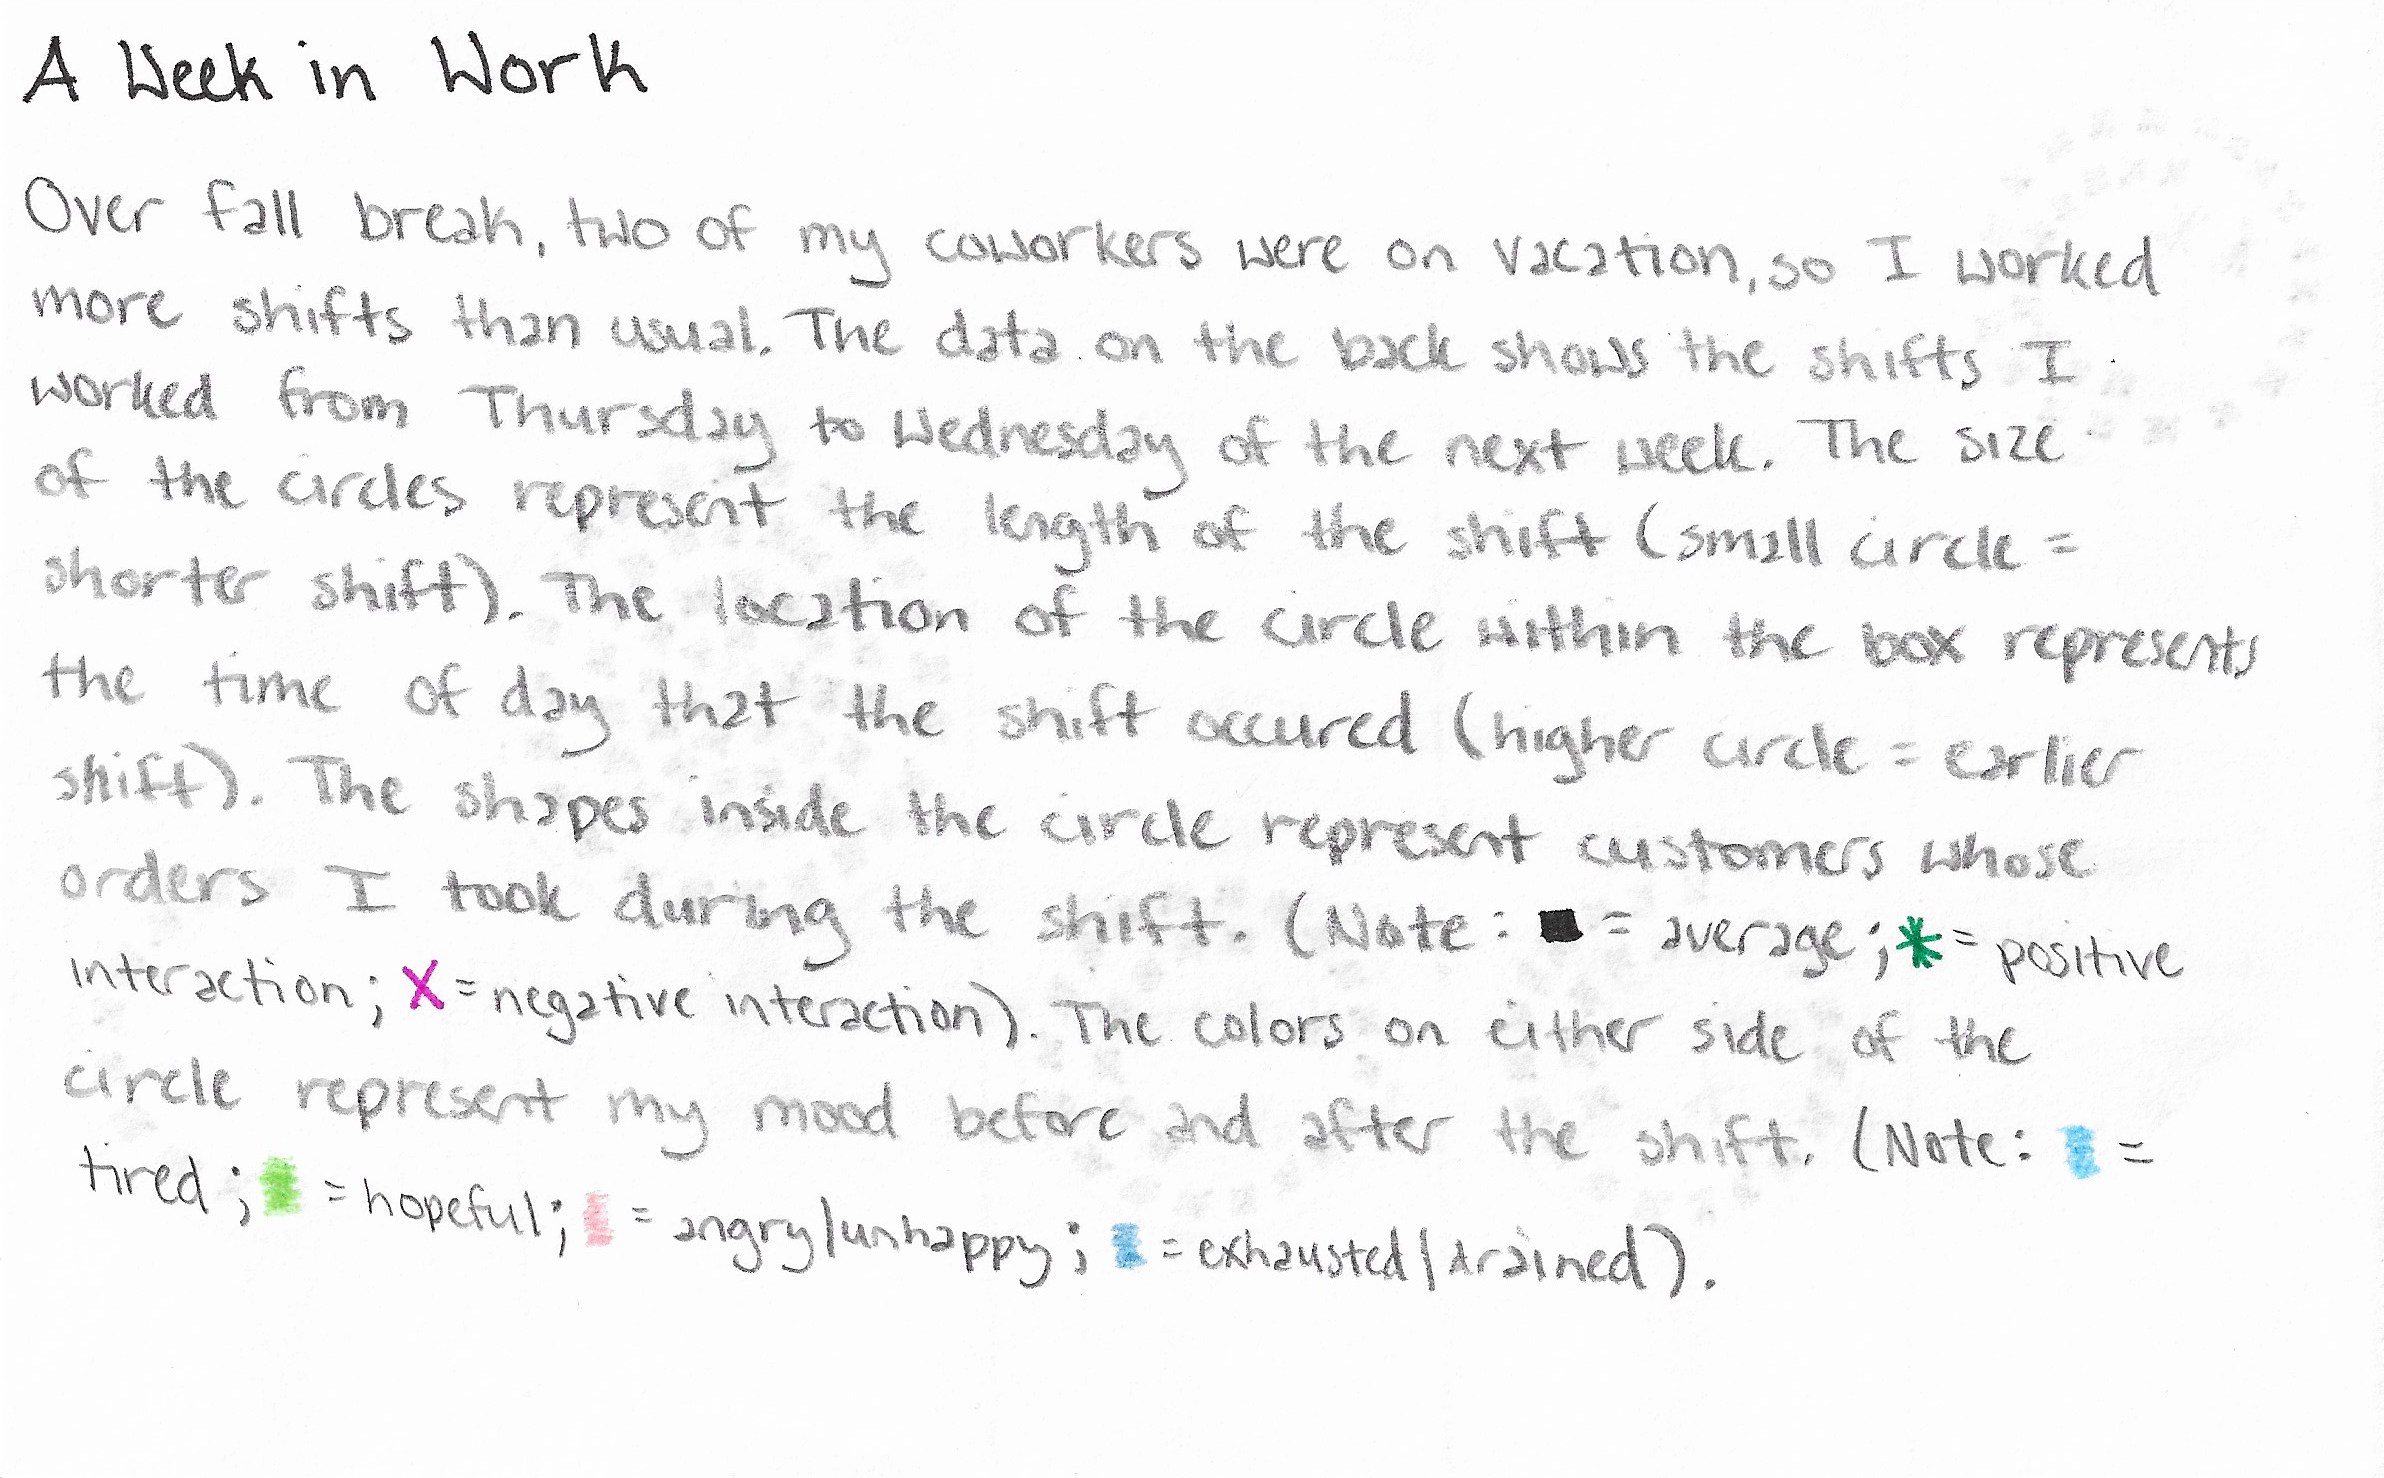 A Week in Work
Over fall break, two of my coworkers were on vacation, so I worked
more shifts than usual. The data on the back shows the shifts I
worked from Thursday to Wednesday of the next week. The size
of the circles represent the length of the shift (small circle =
shorter shift). The location of the circle within the box represents
the time of day that the shift occured (higher circle = earlier
shift). The shapes inside the circle represent customers whose
orders I took during the shift. (Note: ■ = average; * = positive
interaction; X = negative interaction). The colors on either side of the
circle represent my mood before and after the shift. (Note: =
tired; = hopeful; = angry/unhappy; = exhausted/drained).